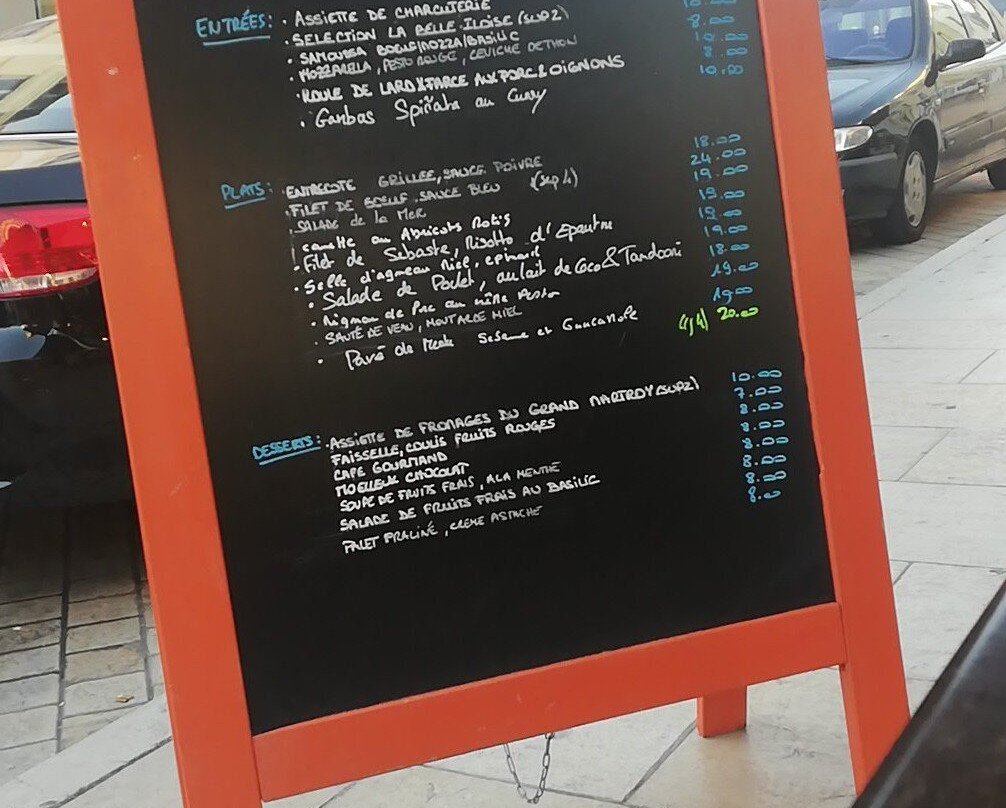 ENTRÉES: • ASSIETTE DE CHARCUTERIE
• SELECTION LA BELLE ILOISE (SUP2) 8.00
• SAMOUSSA BOEUF/MOZZA/BASILIC
• MOZZARELLA, PESTO ROUGE, CEVICHE DE THON 8.00
• ROULE DE LARD & FARCE AUX PORC & OIGNONS 10.00
• Gambas Spiñata au Curry
PLATS: • ENTRECOTE GRILLEE, SAUCE POIVRE 18.00
• FILET DE BOEUF, SAUCE BLEU (sup 4) 24.00
• SALADE de la MER 19.00
• canette au Abricots Rotis 19.00
• Filet de Sebaste, Risotto d'Epautre 19.00
• Selle d'agneau Miel, epinard 19.00
• Salade de Poulet, au lait de Coco & Tandoori 18.00
• Mignon de Porc au Pesto 19.00
• SAUTÉ DE VEAU, MOUTARDE MIEL 19.00
• Pavé de Sesame et Guacamole 20.00
DESSERTS: • ASSIETTE DE FROMAGES DU GRAND MARTROY (SUP2) 10.00
FAISSELLE, COULIS FRUITS ROUGES 7.00
CAFE GOURMAND 8.00
MOELLEUX CHOCOLAT 8.00
SOUPE DE FRUITS FRAIS, A LA MENTHE 8.00
SALADE DE FRUITS FRAIS AU BASILIC 8.00
PALET PRALINÉ, CREME ASTACHE 8.00
8.00